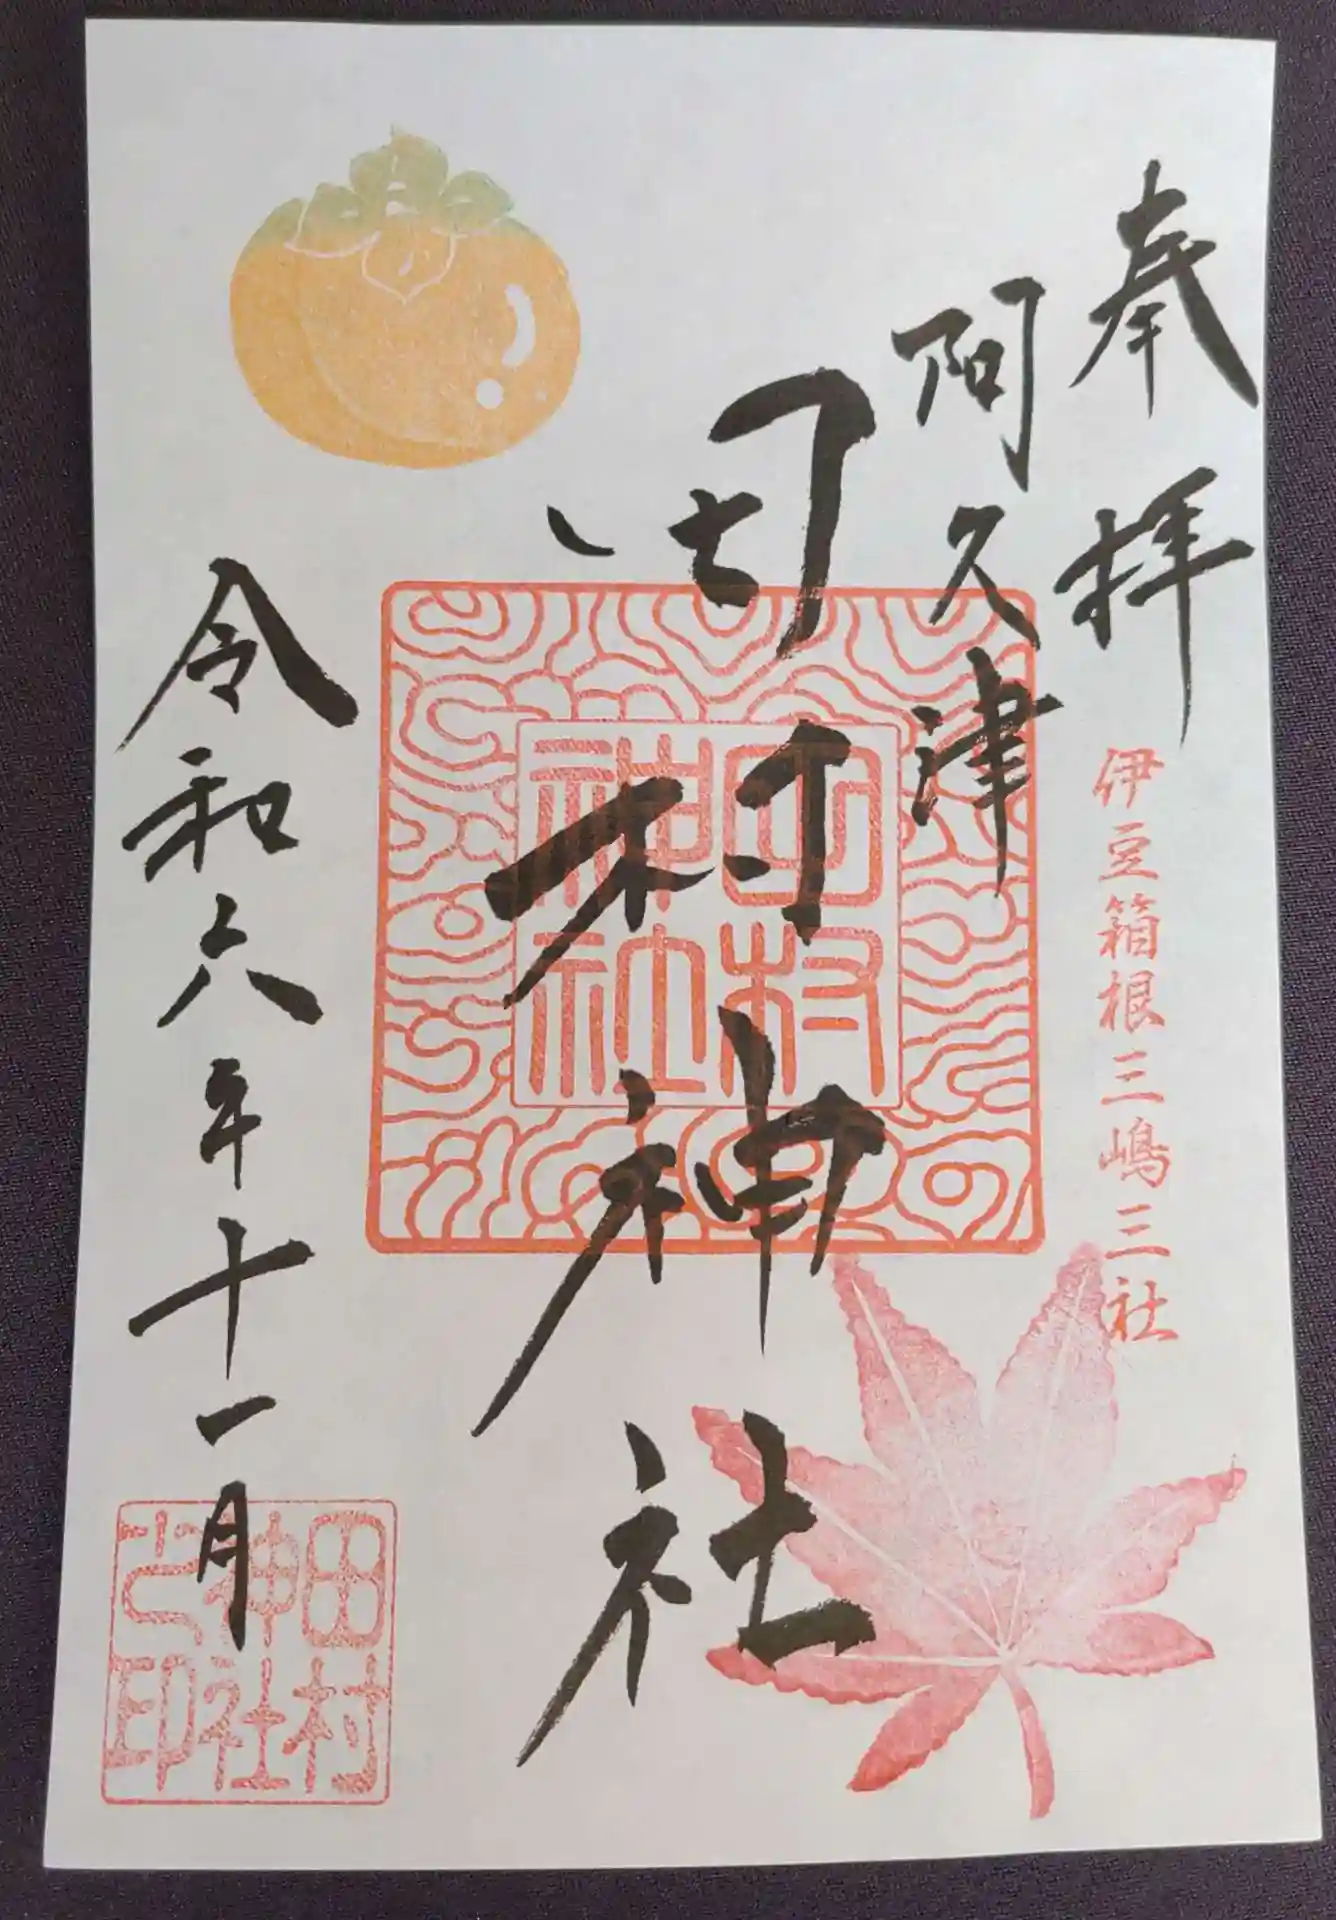 奉拝
伊豆箱根三嶋三社
阿久津
田村神社
田村
神社
令和六年十一月
田村
神社
之印